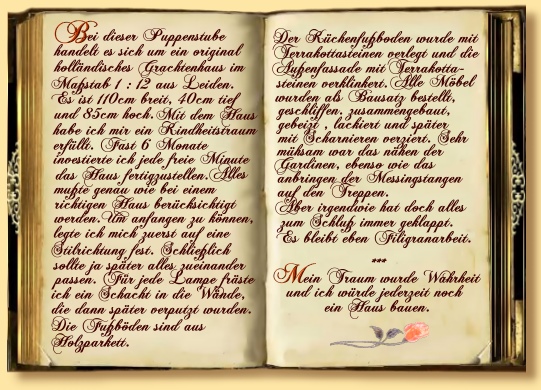 Bei dieser Puppenstube
handelt es sich um ein original
holländisches Grachtenhaus im
Maßstab 1 : 12 aus Leiden.
Es ist 110cm breit, 40cm tief
und 85cm hoch. Mit dem Haus
habe ich mir ein Kindheitstraum
erfüllt. Fast 6 Monate
investierte ich jede freie Minute
das Haus fertigzustellen. Alles
mußte genau wie bei einem
richtigen Haus berücksichtigt
werden. Um anfangen zu können,
legte ich mich zuerst auf eine
Stilrichtung fest. Schließlich
sollte ja später alles zueinander
passen. Für jede Lampe fräste
ich ein Schacht in die Wände,
die dann später verputzt wurden.
Die Fußböden sind aus
Holzparkett.
Der Küchenfußboden wurde mit
Terrakottasteinen verlegt und die
Außenfassade mit Terrakotta-
steinen verklinkert. Alle Möbel
wurden als Bausatz bestellt,
geschliffen, zusammengebaut,
gebeizt , lackiert und später
mit Scharnieren verziert. Sehr
mühsam war das nähen der
Gardinen, ebenso wie das
anbringen der Messingstangen
auf den Treppen.
Aber irgendwie hat doch alles
zum Schluß immer geklappt.
Es bleibt eben Filigranarbeit.
***
Mein Traum wurde Wahrheit
und ich würde jederzeit noch
ein Haus bauen.